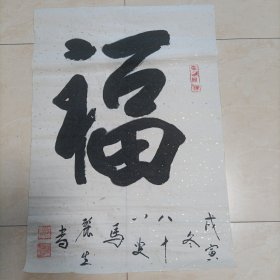 福
戊寅
冬
八十
八叟
馬
麗生
書